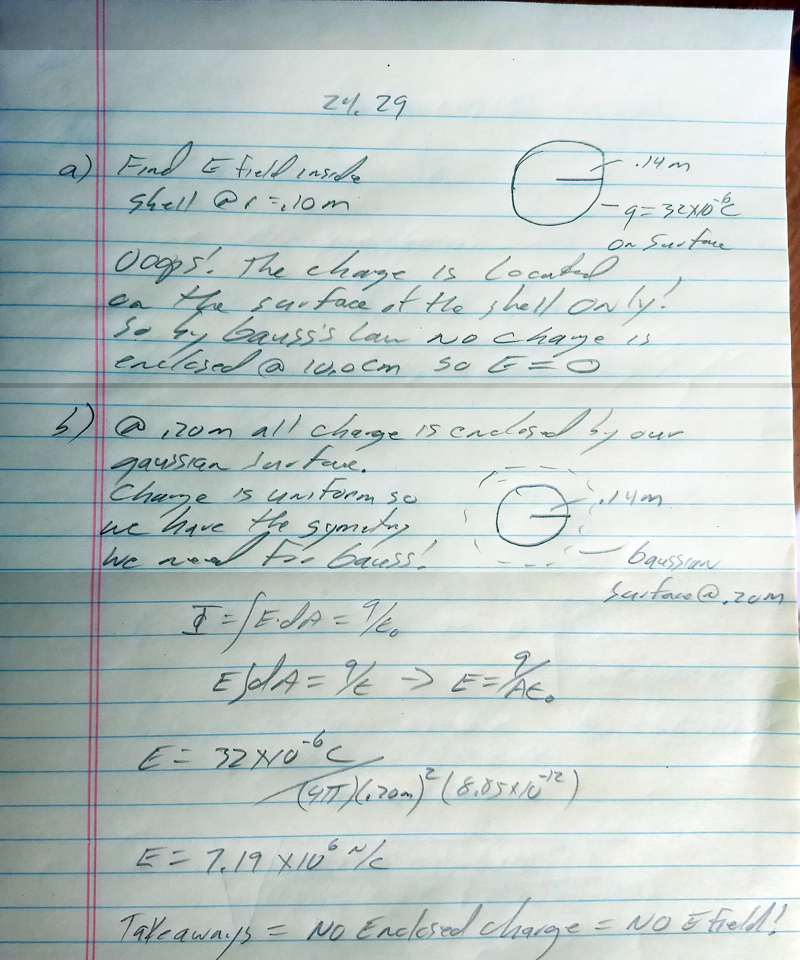 24.29
a) Find E field inside
shell @ r = .10m
.14m
q = 32x10⁻⁶C
on surface
Ooops! The charge is located
on the surface of the shell ONLY!
So by Gauss's Law no charge is
enclosed @ 10.0cm so E = 0
b) @ .20m all charge is enclosed by our
gaussian surface.
Charge is uniform so
we have the symetry
we need for Gauss!
.14m
Gaussian
surface @ .20m
Φ = ∫E·dA = q/ε₀
E∫dA = q/ε -> E = q/Aε₀
E = 32x10⁻⁶C / (4π)(.20m)²(8.85x10⁻¹²)
E = 7.19 x10⁶ N/C
Takeaways = NO Enclosed charge = NO E field!